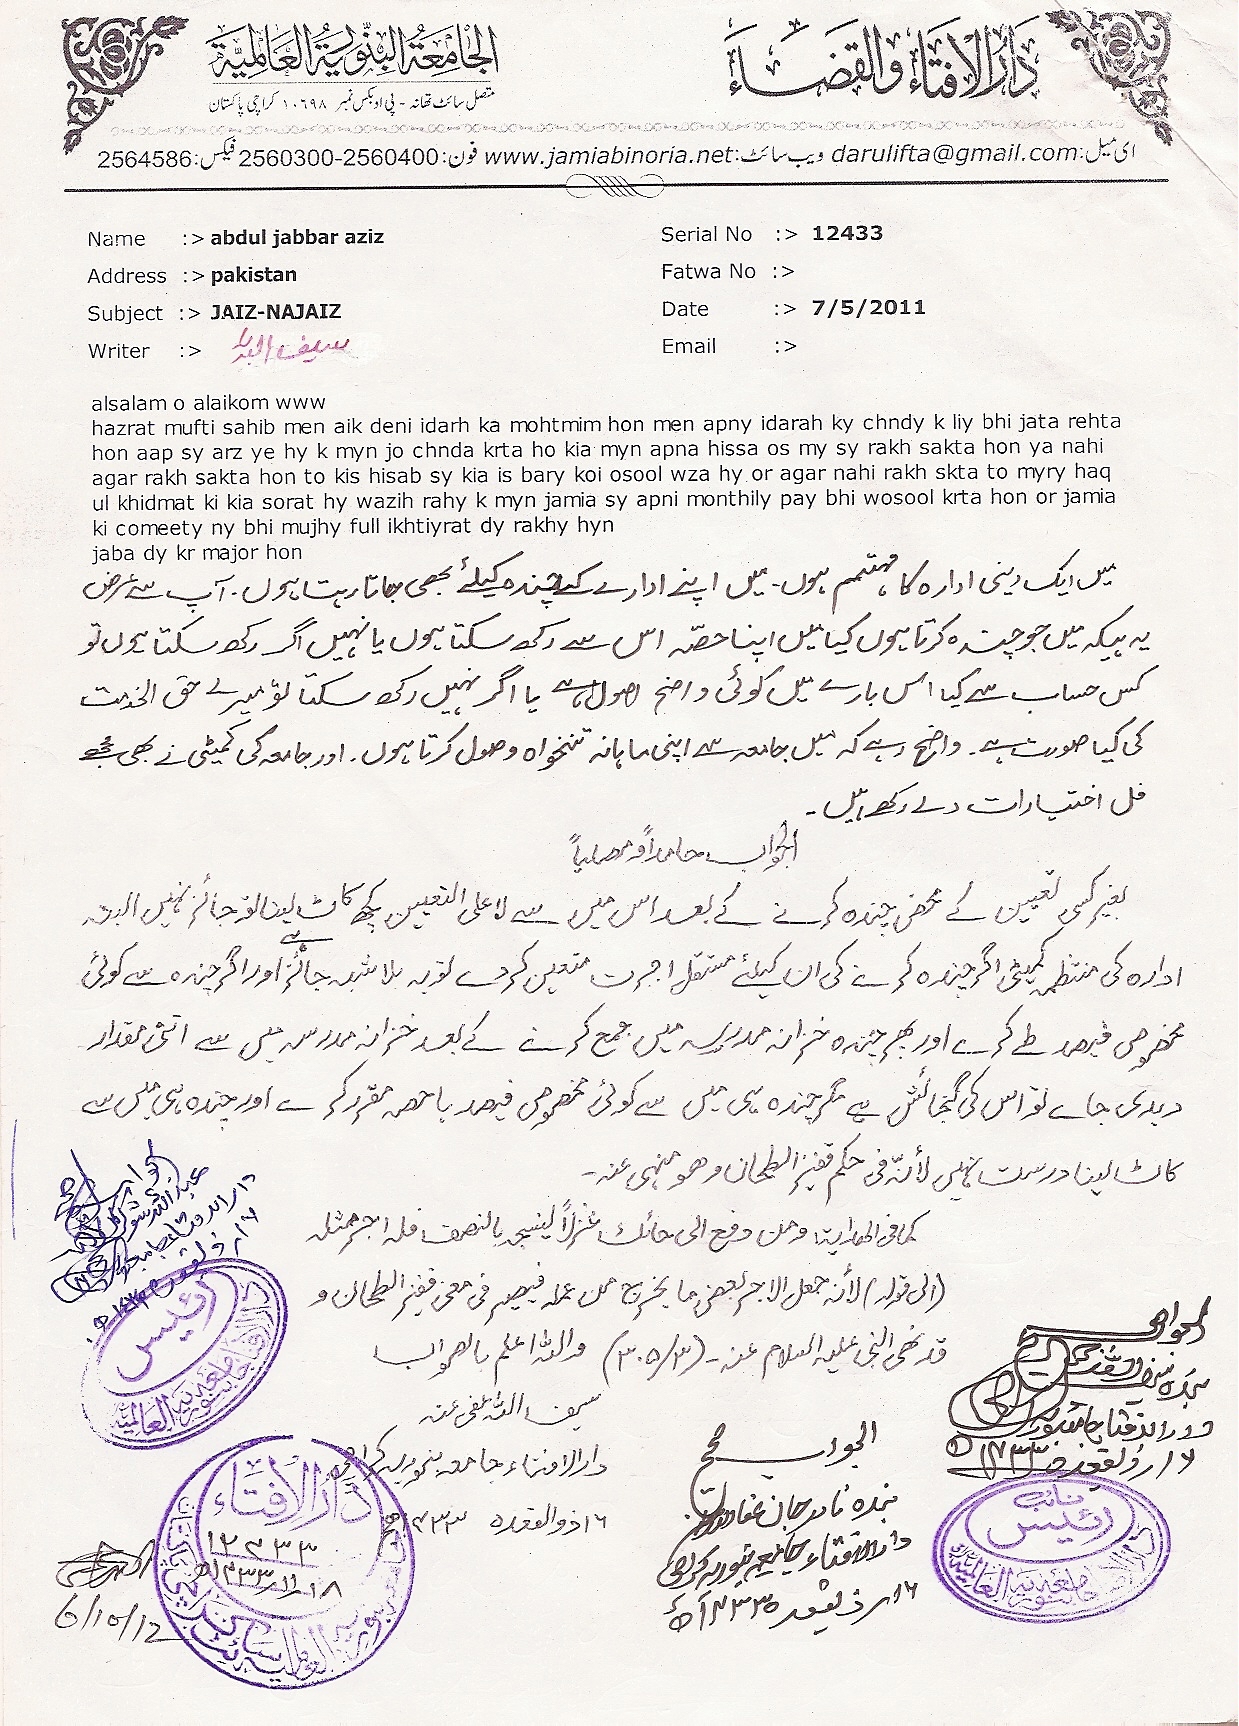 دَارُالاِفتَاء وَالقَضَاءَ
الجَامِعَةُ البِنَّورِيَةُ العَالَمِيَّة
متصل سائٹ تھانہ - پی او بکس نمبر ۱۰۶۹۸ کراچی پاکستان
ای میل:darulifta@gmail.com ویب سائٹ:www.jamiabinoria.net فون:2560300-2560400 فیکس:2564586
Name :> abdul jabbar aziz
Serial No :> 12433
Address :> pakistan
Fatwa No :>
Subject :> JAIZ-NAJAIZ
Date :> 7/5/2011
Writer :> سیف اللہ
Email :>
alsalam o alaikom www
hazrat mufti sahib men aik deni idarh ka mohtmim hon men apny idarah ky chndy k liy bhi jata rehta
hon aap sy arz ye hy k myn jo chnda krta ho kia myn apna hissa os my sy rakh sakta hon ya nahi
agar rakh sakta hon to kis hisab sy kia is bary koi osool wza hy or agar nahi rakh skta to myry haq
ul khidmat ki kia sorat hy wazih rahy k myn jamia sy apni monthily pay bhi wosool krta hon or jamia
ki comeety ny bhi mujhy full ikhtiyrat dy rakhy hyn
jaba dy kr major hon
میں ایک دینی ادارہ کا مہتمم ہوں۔ میں اپنے ادارے کے چندہ کیلئے بھی جاتا رہتا ہوں۔ آپ سے عرض
یہ ہیکہ میں جو چندہ کرتا ہوں کیا میں اپنا حصّہ اس سے رکھ سکتا ہوں یا نہیں اگر رکھ سکتا ہوں تو
کس حساب سے کیا اس بارے میں کوئی واضح اصول ہے یا اگر نہیں رکھ سکتا تو میرے حق الخدمت
کی کیا صورت ہے۔ واضح رہے کہ میں جامعہ سے اپنی ماہانہ تنخواہ وصول کرتا ہوں۔ اور جامعہ کی کمیٹی نے بھی مجھے
فل اختیارات دے رکھے ہیں۔
الجواب حامداً ومصلیاً
بغیر کسی تعیین کے محض چندہ کرنے کے بعد اس میں سے لا علی التعیین کچھ کاٹ لینا تو جائز نہیں البتہ
ادارہ کی منتظمہ کمیٹی اگر چندہ کرنے کی ان کیلئے مستقل اجرت متعین کردے تو یہ بلا شبہ جائز ہے اور اگر چندہ سے کوئی
مخصوص فیصد طے کرے اور پھر چندہ خزانہ مدرسہ میں جمع کرنے کے بعد خزانہ مدرسہ میں سے اتنی مقدار
دیدی جاے تو اس کی گنجائش ہے مگر چندہ ہی میں سے کوئی مخصوص فیصد یا حصہ مقرر کرے اور چندہ ہی میں سے
کاٹ لینا درست نہیں لأنہ فی حکم قفیز الطحان وھو منہی عنہ۔
کما فی الھدایة: ومن دفع الی حائك غزلاً لینسجہ بالنصف فلہ اجر مثلہ
(الی قولہ) لأنہ جعل الاجر بعض ما یخرج من عملہ فیصیر فی معنی قفیز الطحان و
قد نھی النبی علیہ السلام عنہ۔ (۳/۳۰۵) واللہ اعلم بالصواب
سیف اللہ عفی عنہ
دار الافتاء جامعہ بنوریہ کراچی
۱۶ ذوالقعدہ ۱۴۳۳ھ
الجواب صحیح
بندہ نادر جان عفا اللہ عنہ
دار الافتاء جامعہ بنوریہ کراچی
۱۶ ذیقعدہ ۱۴۳۳ھ
الجواب صحیح
دار الافتاء جامعہ بنوریہ
۱۶ ذوالقعدہ ۱۴۳۳ھ
نائب
رئیس
دار الافتاء جامعہ بنوریہ العالمیہ
رئیس
دار الافتاء جامعہ بنوریہ العالمیہ
دَارُ الاِفتَاء
۱۲۴۳۳
6/10/12